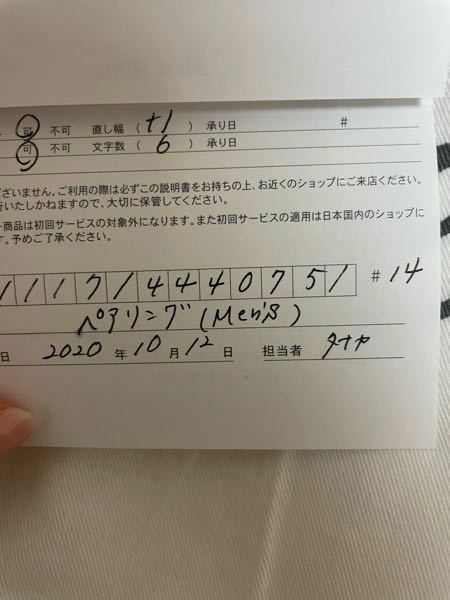 可 不可 直し幅 ( +1 ) 承り日 #
可 不可 文字数 ( 6 ) 承り日
ざいません。ご利用の際は必ずこの説明書をお持ちの上、お近くのショップにご来店ください。
行いたしかねますので、大切に保管してください。
商品は初回サービスの対象外になります。また初回サービスの適用は日本国内のショップに
す。予めご了承ください。
1 1 1 7 1 4 4 4 0 7 5 1 # 14
ペアリング (Men's)
日 2020 年 10 月 12 日 担当者 タナカ